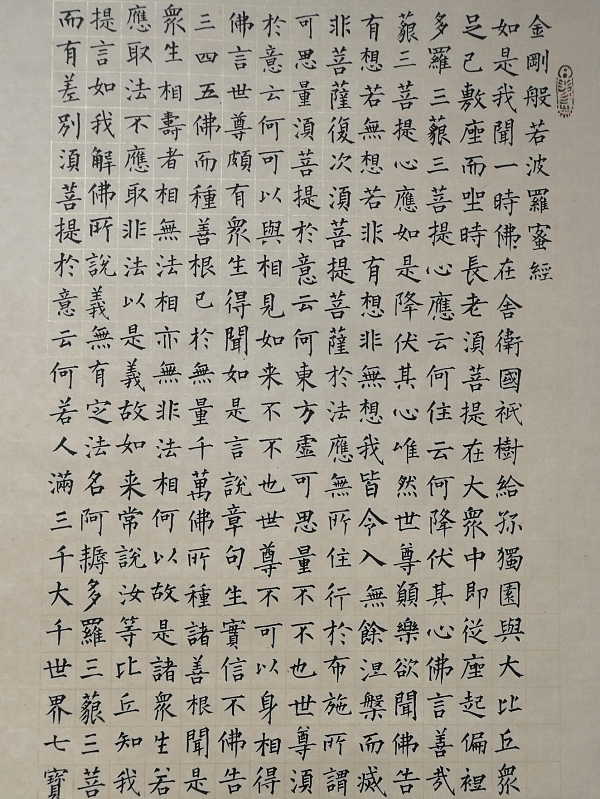 金剛般若波羅蜜經
如是我聞一時佛在舍衛國祇樹給孫獨園與大比丘衆
足已敷座而坐時長老須菩提在大衆中即從座起偏袒
多羅三藐三菩提心應云何住云何降伏其心佛言善哉
藐三菩提心應如是降伏其心唯然世尊願樂欲聞佛告
有想若無想若非有想非無想我皆令入無餘涅槃而滅
非菩薩復次須菩提菩薩於法應無所住行於布施所謂
可思量須菩提於意云何東方虛可思量不不也世尊須
於意云何可以與相見如来不不也世尊不可以身相得
佛言世尊頗有衆生得聞如是言說章句生實信不佛告
三四五佛而種善根已於無量千萬佛所種諸善根聞是
衆生相壽者相無法相亦無非法相何以故是諸衆生若
應取法不應取非法以是義故如来常說汝等比丘知我
提言如我解佛所說義無有定法名阿耨多羅三藐三菩
而有差別須菩提於意云何若人滿三千大千世界七寶